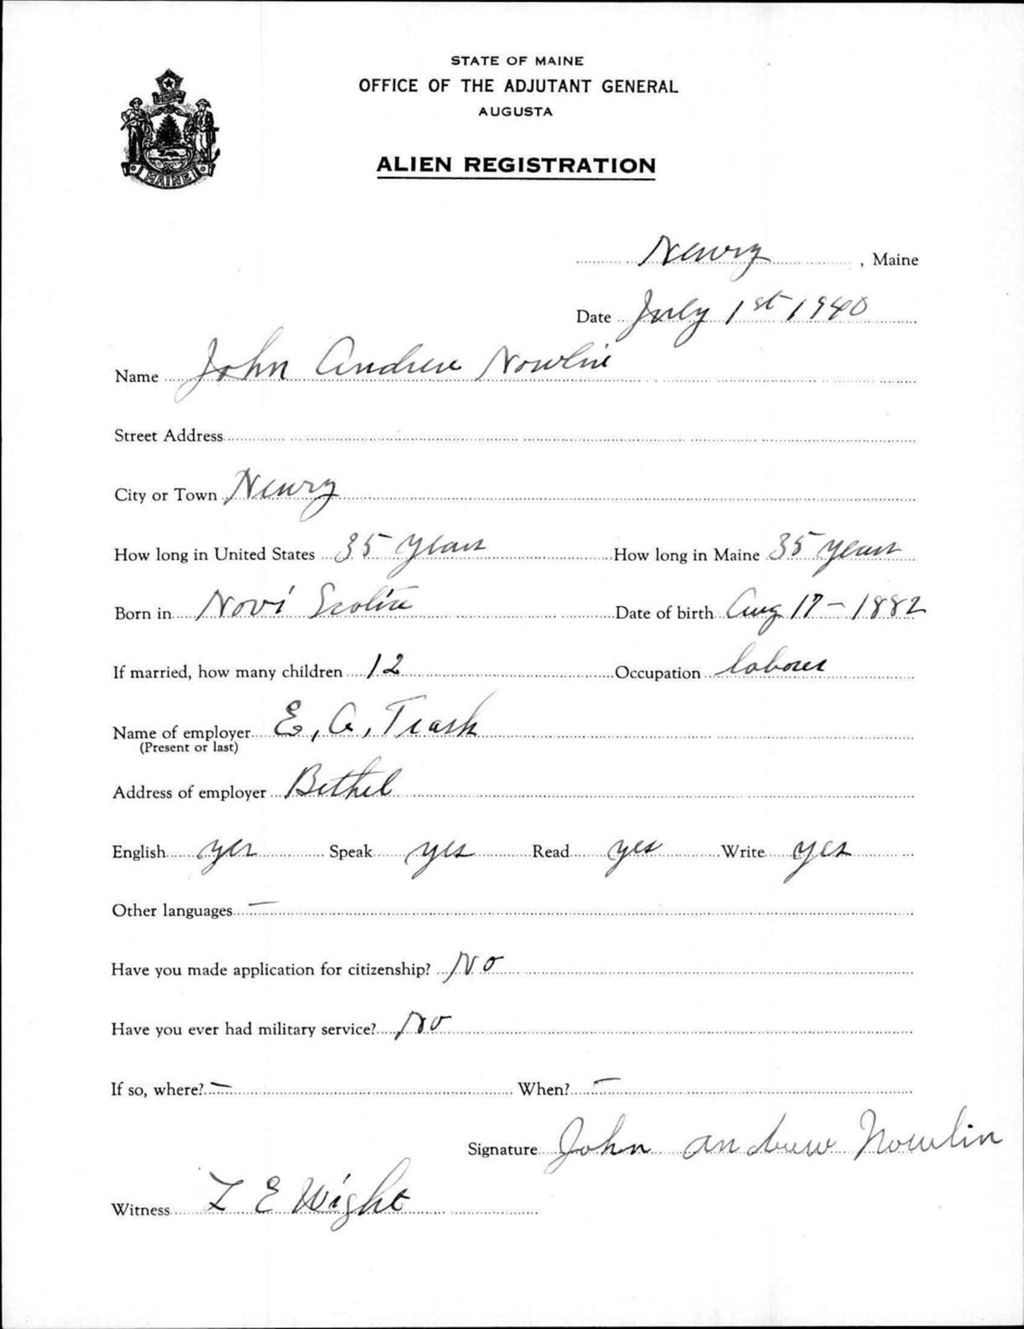 STATE OF MAINE
OFFICE OF THE ADJUTANT GENERAL
AUGUSTA
ALIEN REGISTRATION
MAINE
Newry, Maine
Date July 1st 1940
Name John Andrew Nowlin
Street Address
City or Town Newry
How long in United States 35 years How long in Maine 35 years
Born in Novi Scotia Date of birth Aug 17 - 1882
If married, how many children 12 Occupation laborer
Name of employer E, A, Trask
(Present or last)
Address of employer Bethel
English yes Speak yes Read yes Write yes
Other languages —
Have you made application for citizenship? No
Have you ever had military service? No
If so, where? — When? —
Signature John Andrew Nowlin
Witness L E Wight